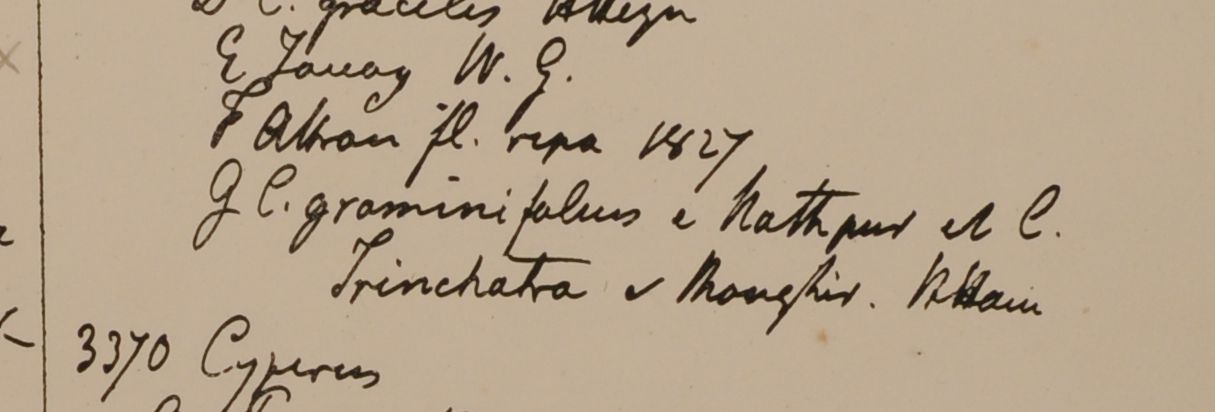 D C. gracilis HHeyn
E Tavoy W. G.
F Attran fl. ripa 1827
G C. graminifolius e Nathpur et C.
Trinchatra e Monghir. HHam
3370 Cyperus